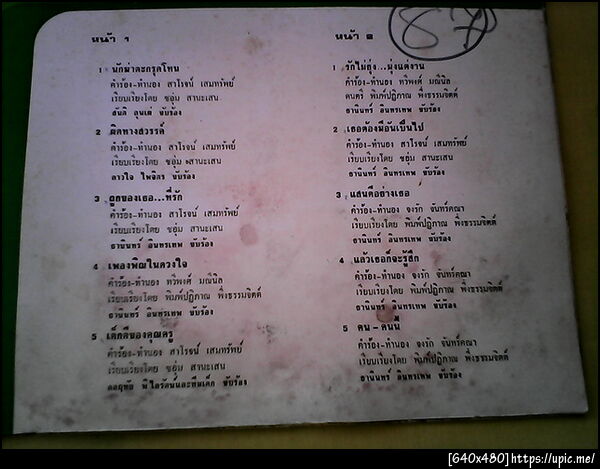 หน้า 1
1 นักฆ่าตะกรุดโทน
คำร้อง-ทำนอง สาโรจน์ เสมทรัพย์
เรียบเรียงโดย ชอุ่ม สานะเสน
สันติ ลุนเผ่ ขับร้อง
2 ผิดทางสวรรค์
คำร้อง-ทำนอง สาโรจน์ เสมทรัพย์
เรียบเรียงโดย ชอุ่ม สานะเสน
ดาวใจ ไพจิตร ขับร้อง
3 ถูกของเธอ...ที่รัก
คำร้อง-ทำนอง สาโรจน์ เสมทรัพย์
เรียบเรียงโดย ชอุ่ม สานะเสน
ธานินทร์ อินทรเทพ ขับร้อง
4 เพลงพิณในดวงใจ
คำร้อง-ทำนอง ทวีพงศ์ มณีนิล
เรียบเรียงโดย พิมพ์ปฏิภาณ พึ่งธรรมจิตต์
ธานินทร์ อินทรเทพ ขับร้อง
5 เด็กดีของคุณครู
คำร้อง-ทำนอง สาโรจน์ เสมทรัพย์
เรียบเรียงโดย ชอุ่ม สานะเสน
ขับร้อง
หน้า 2
87
1 รักไม่ยุ่ง..มุ่งแต่งาน
คำร้อง-ทำนอง ทวีพงศ์ มณีนิล
ดนตรี พิมพ์ปฏิภาณ พึ่งธรรมจิตต์
ธานินทร์ อินทรเทพ ขับร้อง
2 เธอต้องมีอันเป็นไป
คำร้อง-ทำนอง สาโรจน์ เสมทรัพย์
เรียบเรียงโดย ชอุ่ม สานะเสน
ธานินทร์ อินทรเทพ ขับร้อง
3 แสนดีอย่างเธอ
คำร้อง-ทำนอง จงรัก จันทร์คณา
เรียบเรียงโดย พิมพ์ปฏิภาณ พึ่งธรรมจิตต์
ธานินทร์ อินทรเทพ ขับร้อง
4 แล้วเธอก็จะรู้สึก
คำร้อง-ทำนอง จงรัก จันทร์คณา
เรียบเรียงโดย พิมพ์ปฏิภาณ พึ่งธรรมจิตต์
ธานินทร์ อินทรเทพ ขับร้อง
5 คน-คนนี้
คำร้อง-ทำนอง จงรัก จันทร์คณา
เรียบเรียงโดย พิมพ์ปฏิภาณ พึ่งธรรมจิตต์
ธานินทร์ อินทรเทพ ขับร้อง
[640x480]https://upic.me/